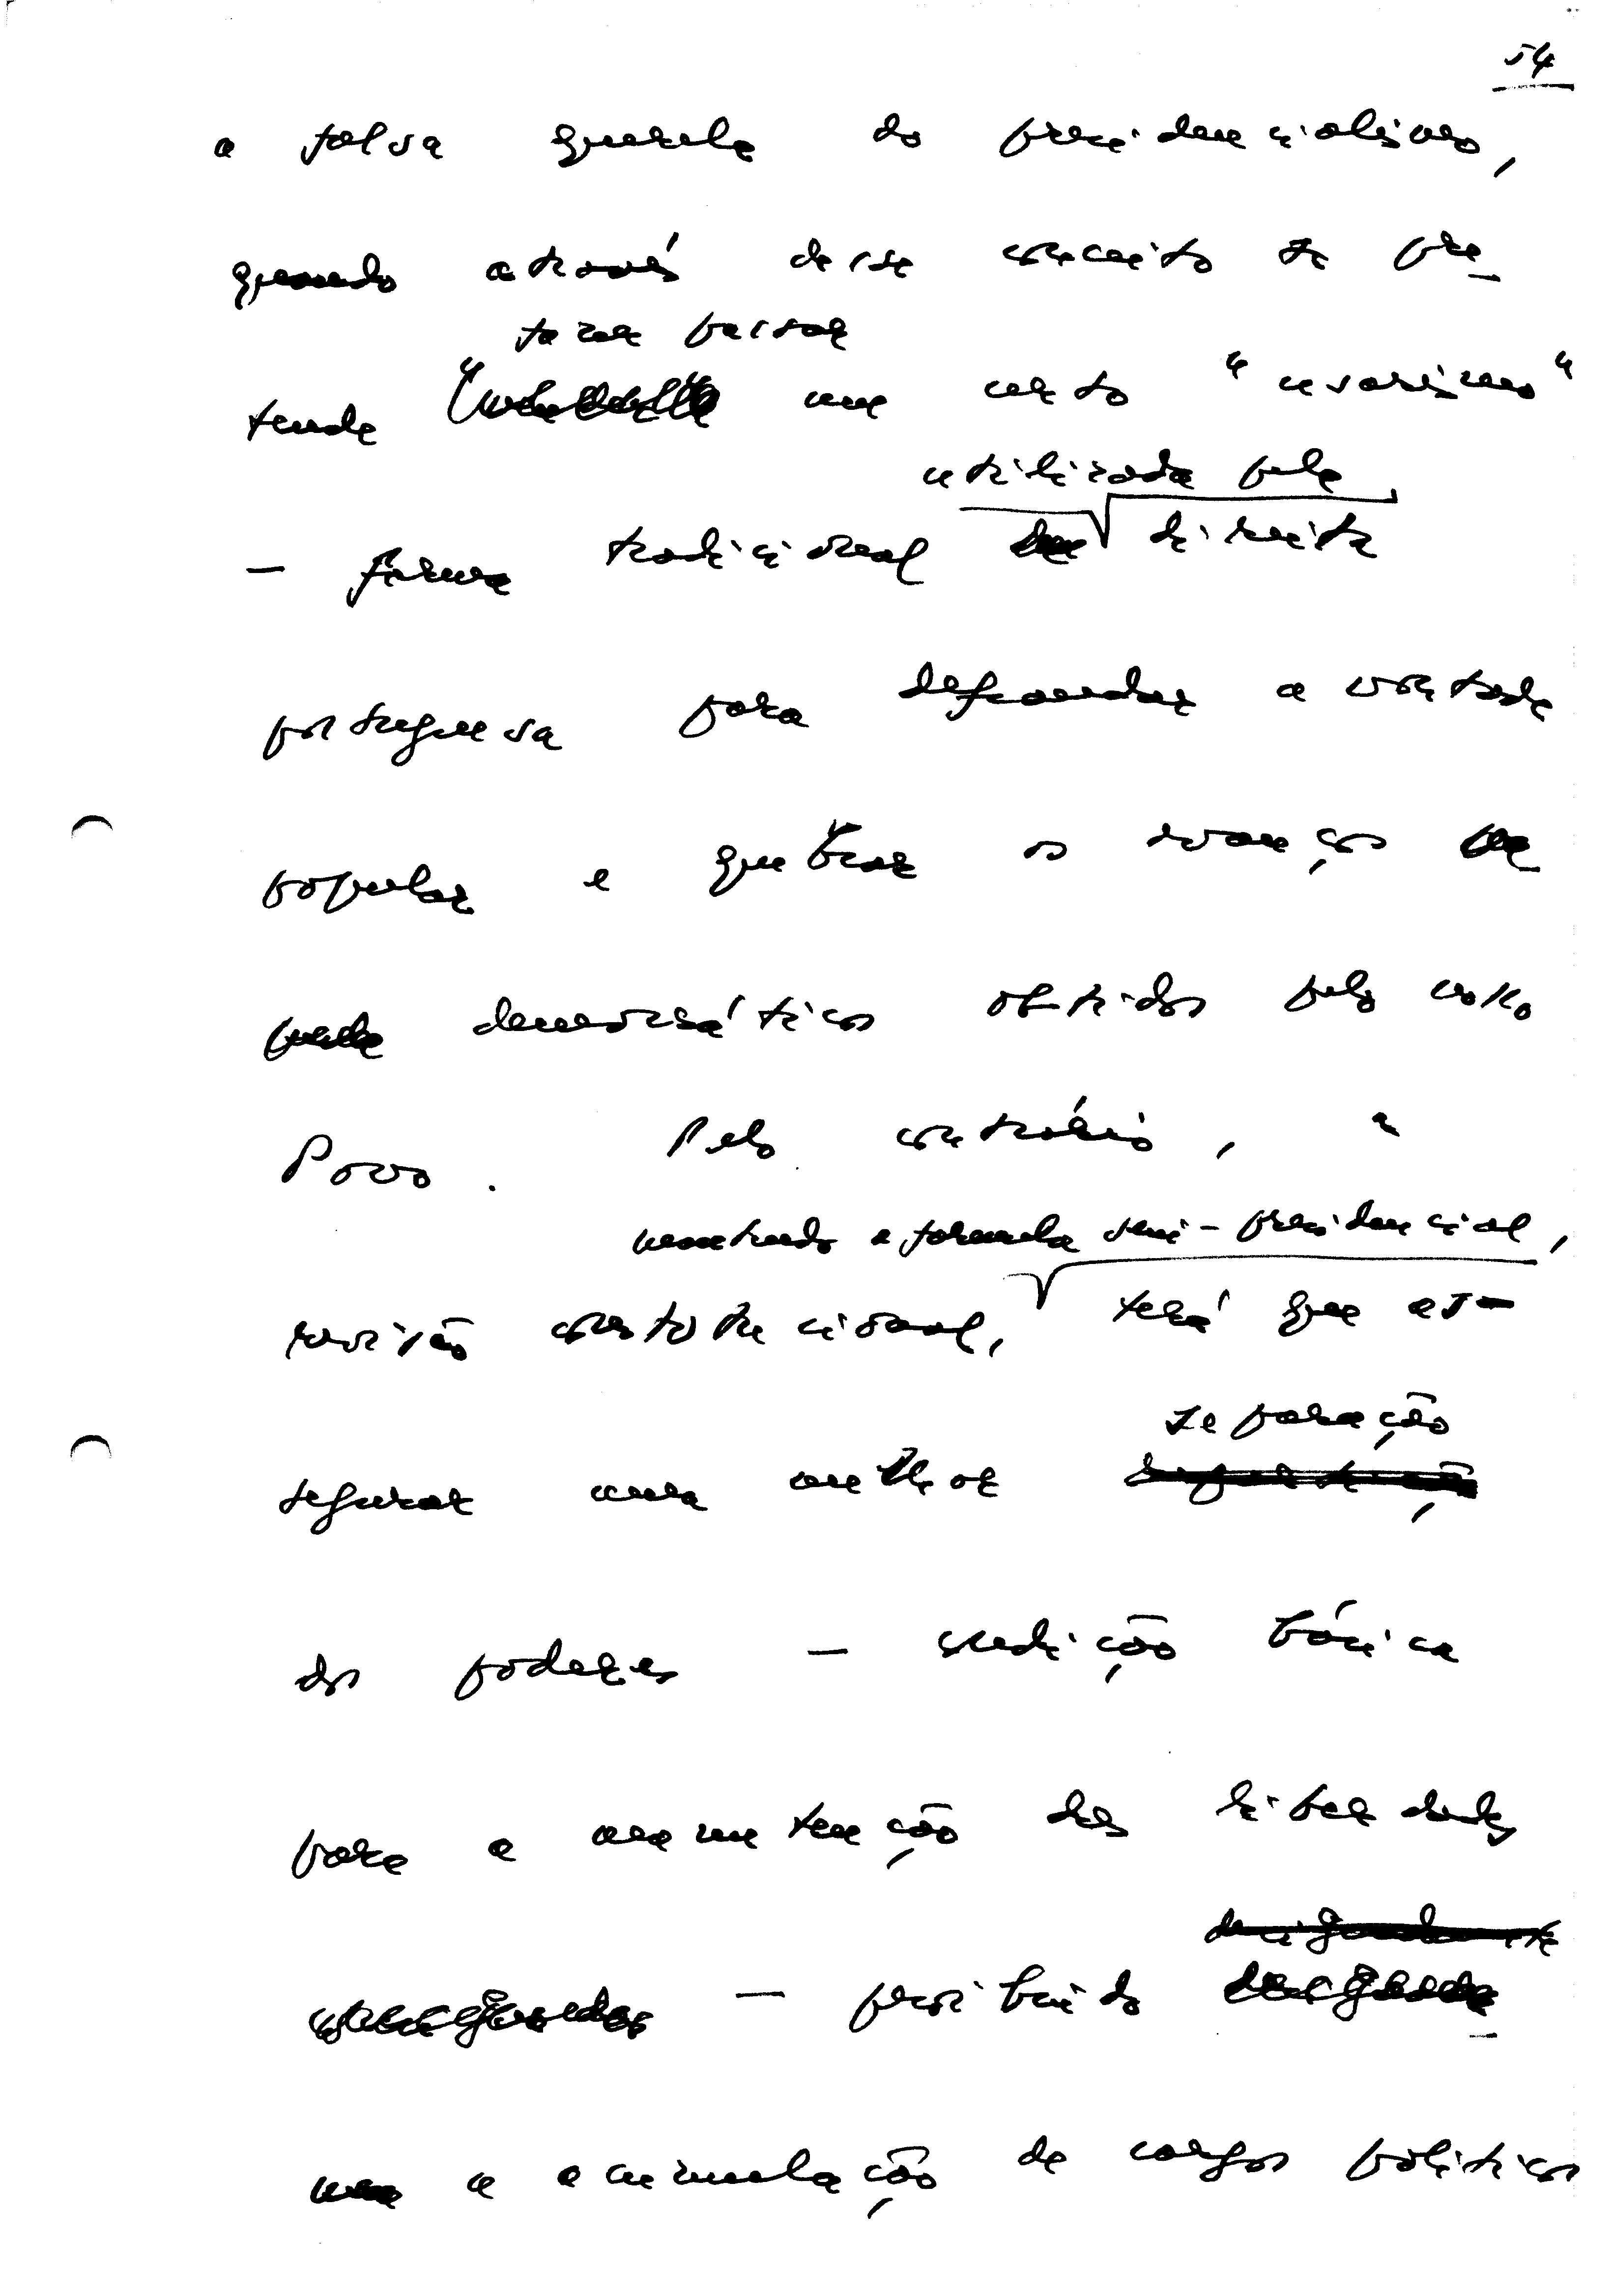 54
a falsa querela do presidencialismo,
quando através desse conceito se pre-
fazer passar
tende um certo " cesarismo "
utilizada pela
- forma tradicional direita
portuguesa para defraudar a vontade
popular e quebrar os avanços
democráticos obtidos pelo voto
Povo. Pelo contrário, a
mantendo a formula semi-presidencial,
revisão constitucional, terá que as-
separação
segurar uma melhor
dos poderes - condição básica
para a manutenção das liberdades
- proibindo
a acumulação de cargos políticos